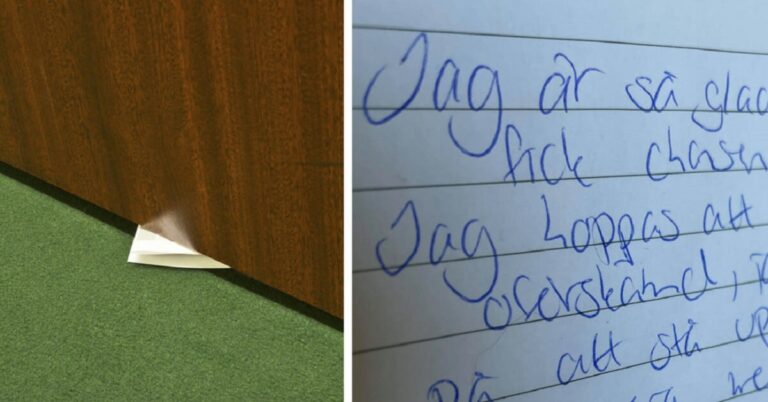 Jag är så glad
fick chansen
Jag hoppas att
överstånd, i
på att stå up